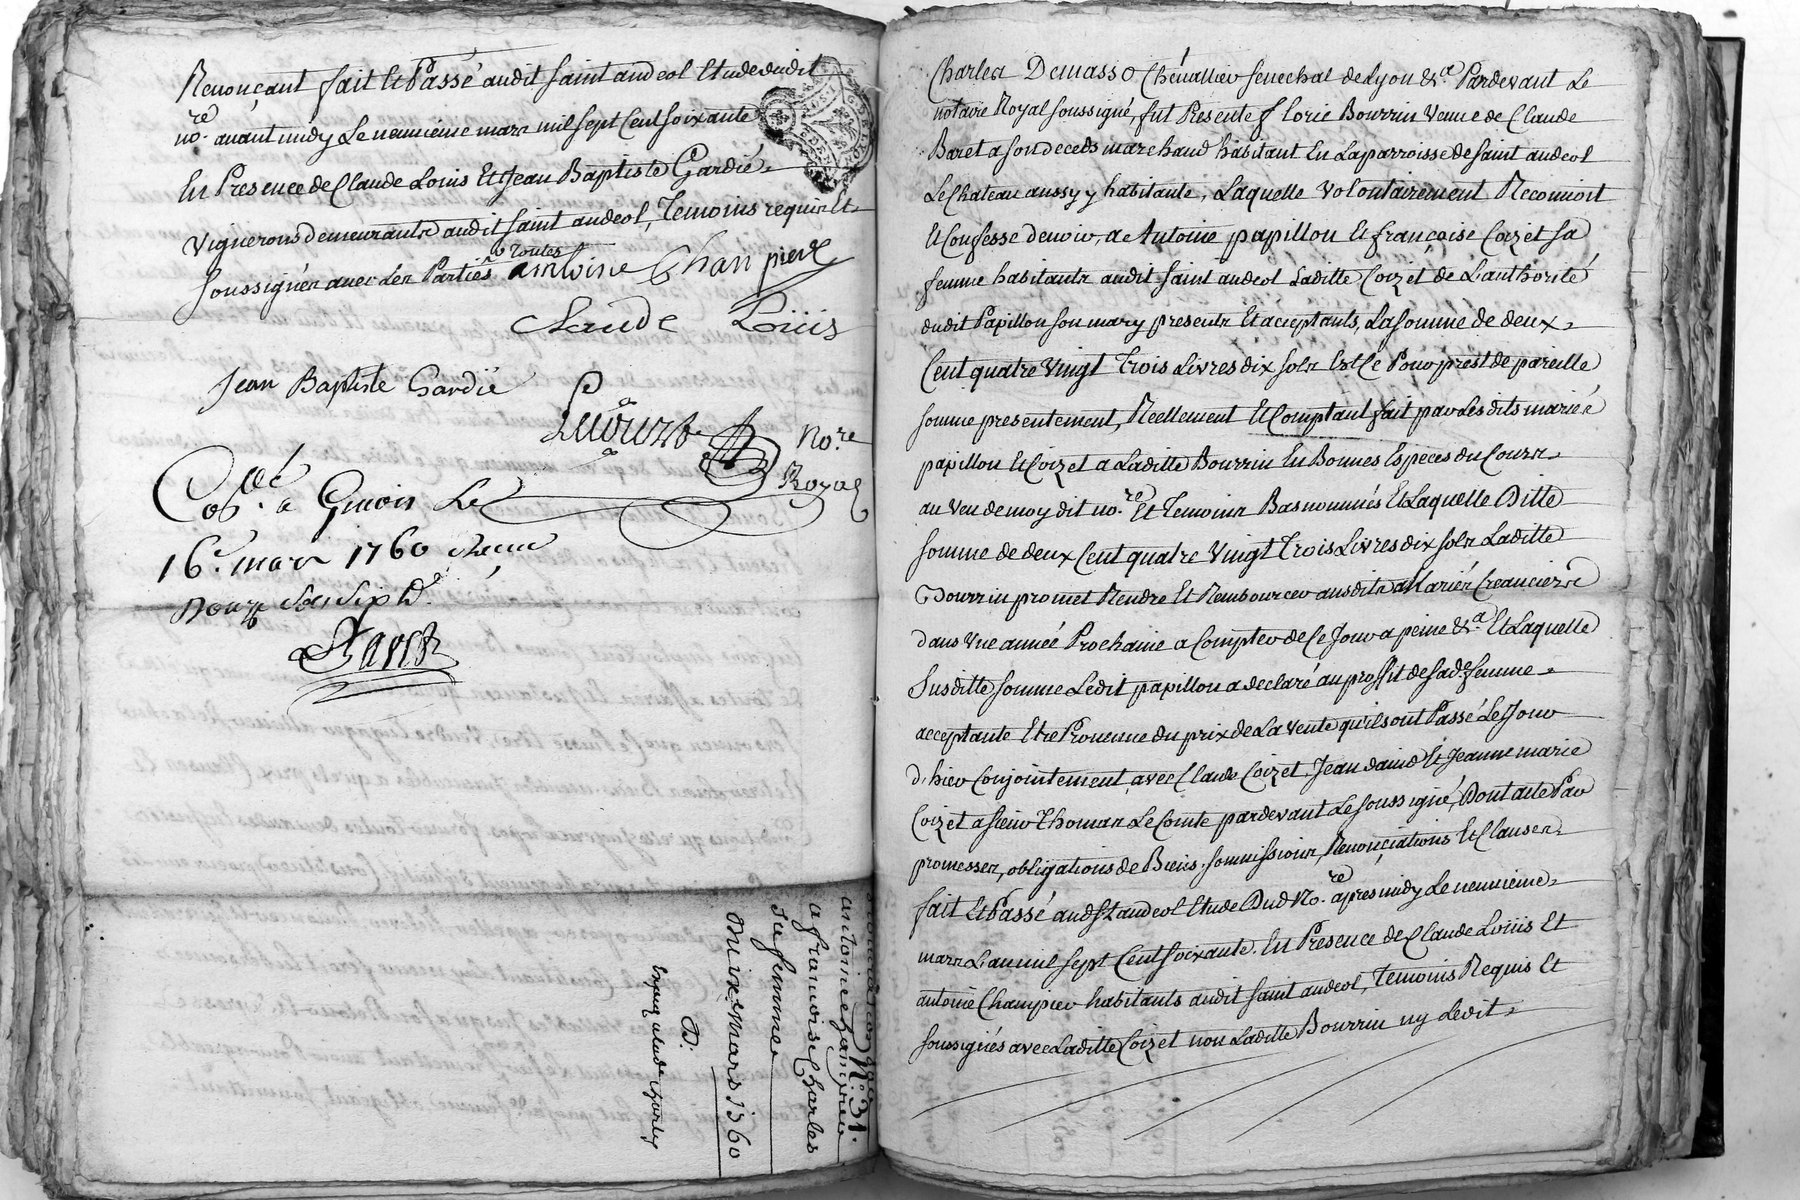 Renonçant fait Et Passé audit saint andeol Etude dudit
no.re avant midy Le neuvieme mars mil sept Cent soixante
En Presence de Claude Louis Et Jean Baptiste Gardié
Vignerons demeurants audit saint andeol, Temoins requis Et
soussignés avec Les Parties
antoine Champier
Claude Loüis
Jean Baptiste Gardié
no.re
Royal
a Givors Le
16.e mars 1760 Recu
Douze sols six d.
N.º 31.
antoine Champier
a francoise Charles
sa femme
Du ixe mars 1760
D.
Charles Demasso Chevallier senechal de Lyon &.a Pardevant Le
notaire Royal soussigné, fut Presente florie Bourrin Veuve de Claude
Baret a son deceds marchand habitant En La parroisse de saint andeol
Le Chateau aussy y habitante, Laquelle volontairement Reconnoit
Et Confesse devoir, a Antoine papillon Et françoise Coizet sa
femme habitants audit saint andeol Laditte Coizet de L'authorité
dudit Papillon son mary presents Et acceptants, La somme de deux
Cent quatre Vingt Trois Livres dix sols Est Ce Pour prest de pareille
somme presentement, Réellement Et Comptant fait par Les dits mariés
papillon Et Coizet a Laditte Bourrin En Bonnes Especes du Cours
au Veu de moy dit no.re Et Temoins Bas nommés Et Laquelle Ditte
somme de deux Cent quatre Vingt Trois Livres dix sols Laditte
Bourrin promet Rendre Et Rembourcer ausdits Mariés Creanciers
dans Une année Prochaine a Compter de Ce Jour a peine &.a Et Laquelle
susditte somme Ledit papillon a declaré au proffit de sad.e femme
acceptante Etre Provenue du prix de La Vente qu'ils ont Passé Le Jour
d'hier Conjointement avec Claude Coizet, Jean david Et Jeanne marie
Coizet a sieur Thomas Le Comte pardevant Le soussigné, Dont acte Par
promesses, obligations de Biens, soumissions, Renonciations Et Clauses
fait Et Passé aud St andeol Etude Dud No.re apres midy Le neuvieme
mars L'an mil sept Cent soixante. En Presence de Claude Loüis Et
antoine Champier habitants audit saint andeol, Temoins Requis Et
soussignés avec Laditte Coizet non Laditte Bourrin ny Ledit